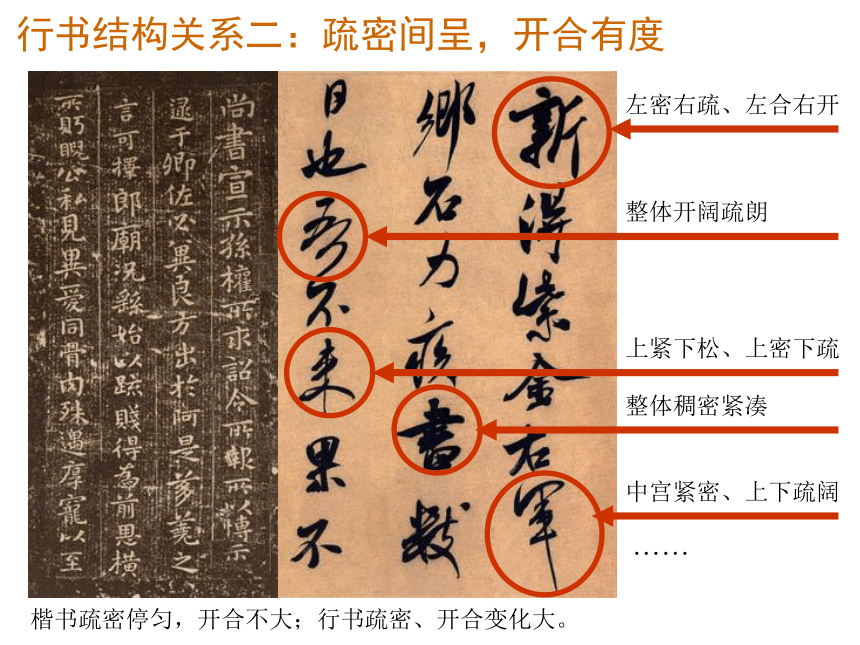 行书结构关系二：疏密间呈，开合有度
尚書宣示孫權所求詔令所報所以博示
逮于卿佐必異良方出於阿是芻蕘之
言可擇郎廟況繇始以疏賤得為前恩橫
所眄睨公私見異愛同骨肉殊遇厚寵以至
新得紫金右軍
鄉石力疾書數
日也吾不来果不
左密右疏、左合右开
整体开阔疏朗
上紧下松、上密下疏
整体稠密紧凑
中宫紧密、上下疏阔
……
楷书疏密停匀，开合不大；行书疏密、开合变化大。